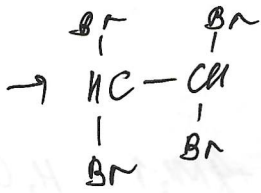 Br Br
→ HC — CH
Br Br